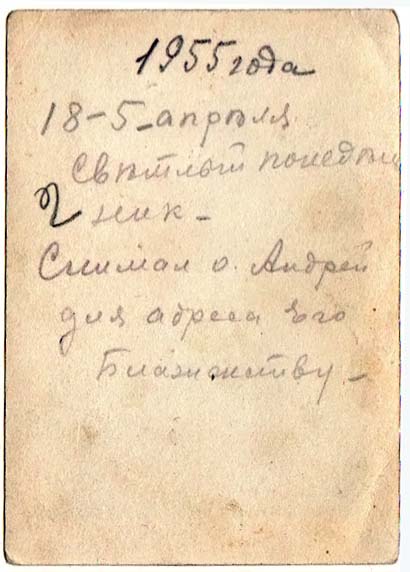 1955 года
18-5-апрѣля
Свѣтлый понедѣль
ник -
Снимал о. Андрей
для адреса Его
Блаженству -